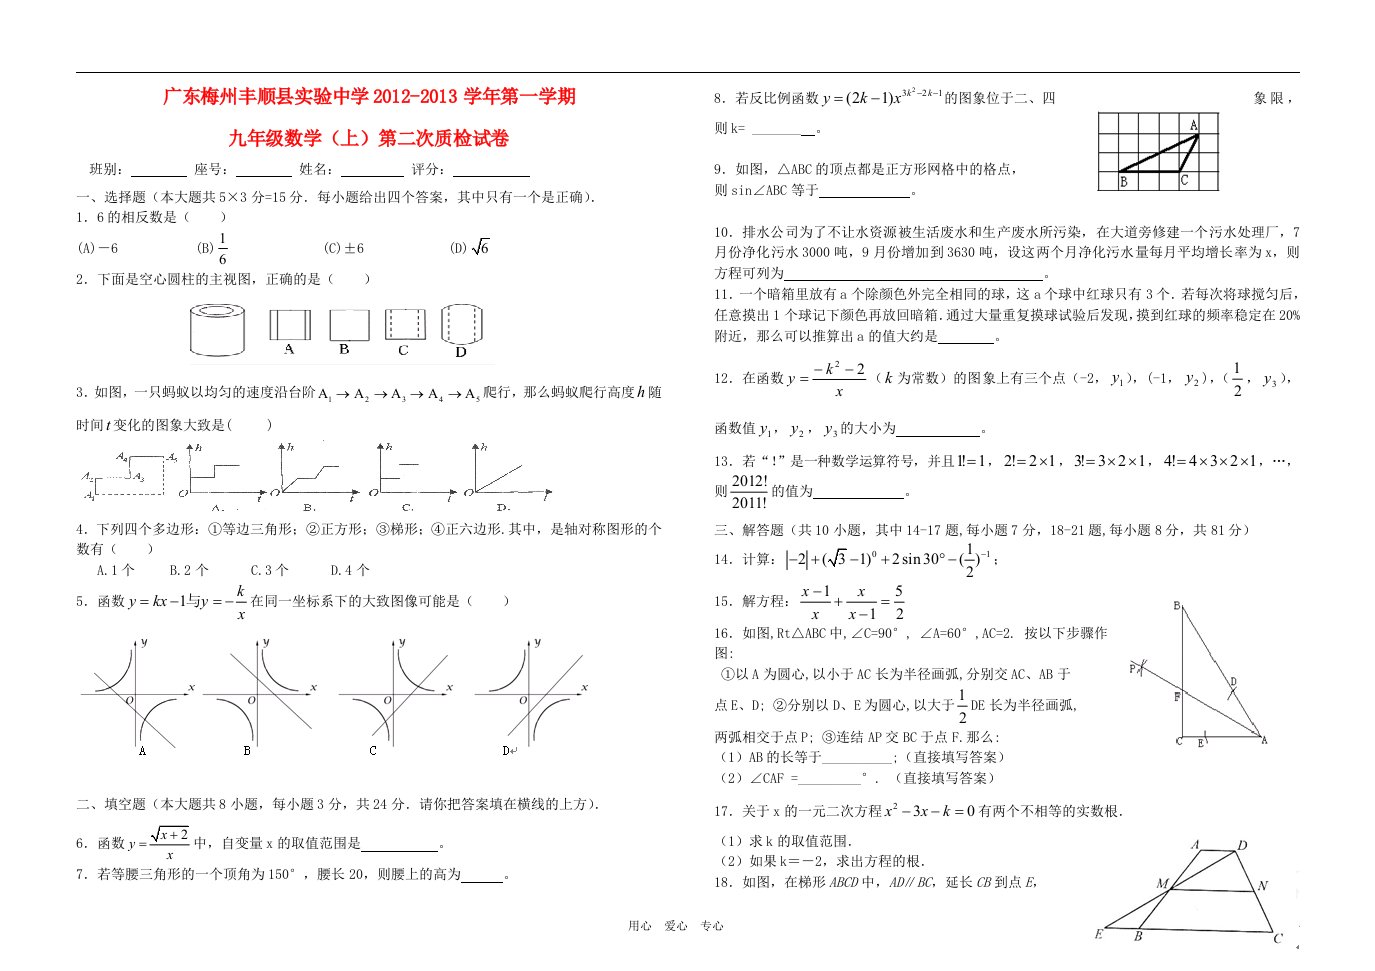 广东梅州丰顺县实验中学 2012-2013 学年第一学期
九年级数学（上）第二次质检试卷
班别：________ 座号：________ 姓名：___________ 评分：___________
一、选择题（本大题共 5×3 分=15 分．每小题给出四个答案，其中只有一个是正确）．
1．6 的相反数是（　　）
(A)－6　　(B) 1/6　　(C)±6　　(D) √6
2．下面是空心圆柱的主视图，正确的是（　　）
A　B　C　D
3．如图，一只蚂蚁以均匀的速度沿台阶 A₁ → A₂ → A₃ → A₄ → A₅ 爬行，那么蚂蚁爬行高度 h 随
时间 t 变化的图象大致是(　　)
A₁ A₂ A₃ A₄ A₅ h O t A. h O t B. h O t C. h O t D.
4．下列四个多边形：①等边三角形；②正方形；③梯形；④正六边形.其中，是轴对称图形的个
数有（　　）
A.1 个　B.2 个　C.3 个　D.4 个
5．函数 y = kx −1与y = − k/x 在同一坐标系下的大致图像可能是（　　）
y x O A　y x O B　y x O C　y x O D↵
二、填空题（本大题共 8 小题，每小题 3 分，共 24 分．请你把答案填在横线的上方）．
6．函数 y = √(x+2)/x 中，自变量 x 的取值范围是___________。
7．若等腰三角形的一个顶角为 150°，腰长 20，则腰上的高为______。
8．若反比例函数 y = (2k −1)x^(3k²−2k−1) 的图象位于二、四　　象限，
则 k= _________。
9．如图，△ABC 的顶点都是正方形网格中的格点，
则 sin∠ABC 等于_____________。
A B C
10．排水公司为了不让水资源被生活废水和生产废水所污染，在大道旁修建一个污水处理厂，7
月份净化污水 3000 吨，9 月份增加到 3630 吨，设这两个月净化污水量每月平均增长率为 x，则
方程可列为_____________________________________。
11．一个暗箱里放有 a 个除颜色外完全相同的球，这 a 个球中红球只有 3 个．若每次将球搅匀后，
任意摸出 1 个球记下颜色再放回暗箱．通过大量重复摸球试验后发现，摸到红球的频率稳定在 20%
附近，那么可以推算出 a 的值大约是________。
12．在函数 y = (−k² − 2)/x （k 为常数）的图象上有三个点（-2，y₁），(-1，y₂)，（1/2，y₃），
函数值 y₁，y₂，y₃ 的大小为____________。
13．若“！”是一种数学运算符号，并且 1!=1，2!=2×1，3!=3×2×1，4!=4×3×2×1，…，
则 2012!/2011! 的值为_____________。
三、解答题（共 10 小题，其中 14-17 题,每小题 7 分，18-21 题,每小题 8 分，共 81 分）
14．计算：|−2| + (√3 −1)⁰ + 2sin30° − (1/2)⁻¹；
15．解方程：(x−1)/x + x/(x−1) = 5/2
16．如图,Rt△ABC 中,∠C=90°, ∠A=60°,AC=2. 按以下步骤作
图:
①以 A 为圆心,以小于 AC 长为半径画弧,分别交 AC、AB 于
点 E、D; ②分别以 D、E 为圆心,以大于 1/2 DE 长为半径画弧,
两弧相交于点 P; ③连结 AP 交 BC 于点 F.那么:
（1）AB 的长等于__________;（直接填写答案）
（2）∠CAF =_________°. （直接填写答案）
B P D F C E A
17．关于 x 的一元二次方程 x² − 3x − k = 0 有两个不相等的实数根．
（1）求 k 的取值范围．
（2）如果 k＝－2，求出方程的根．
18．如图，在梯形 ABCD 中，AD∥BC，延长 CB 到点 E，
A D M N E B C
用心　爱心　专心